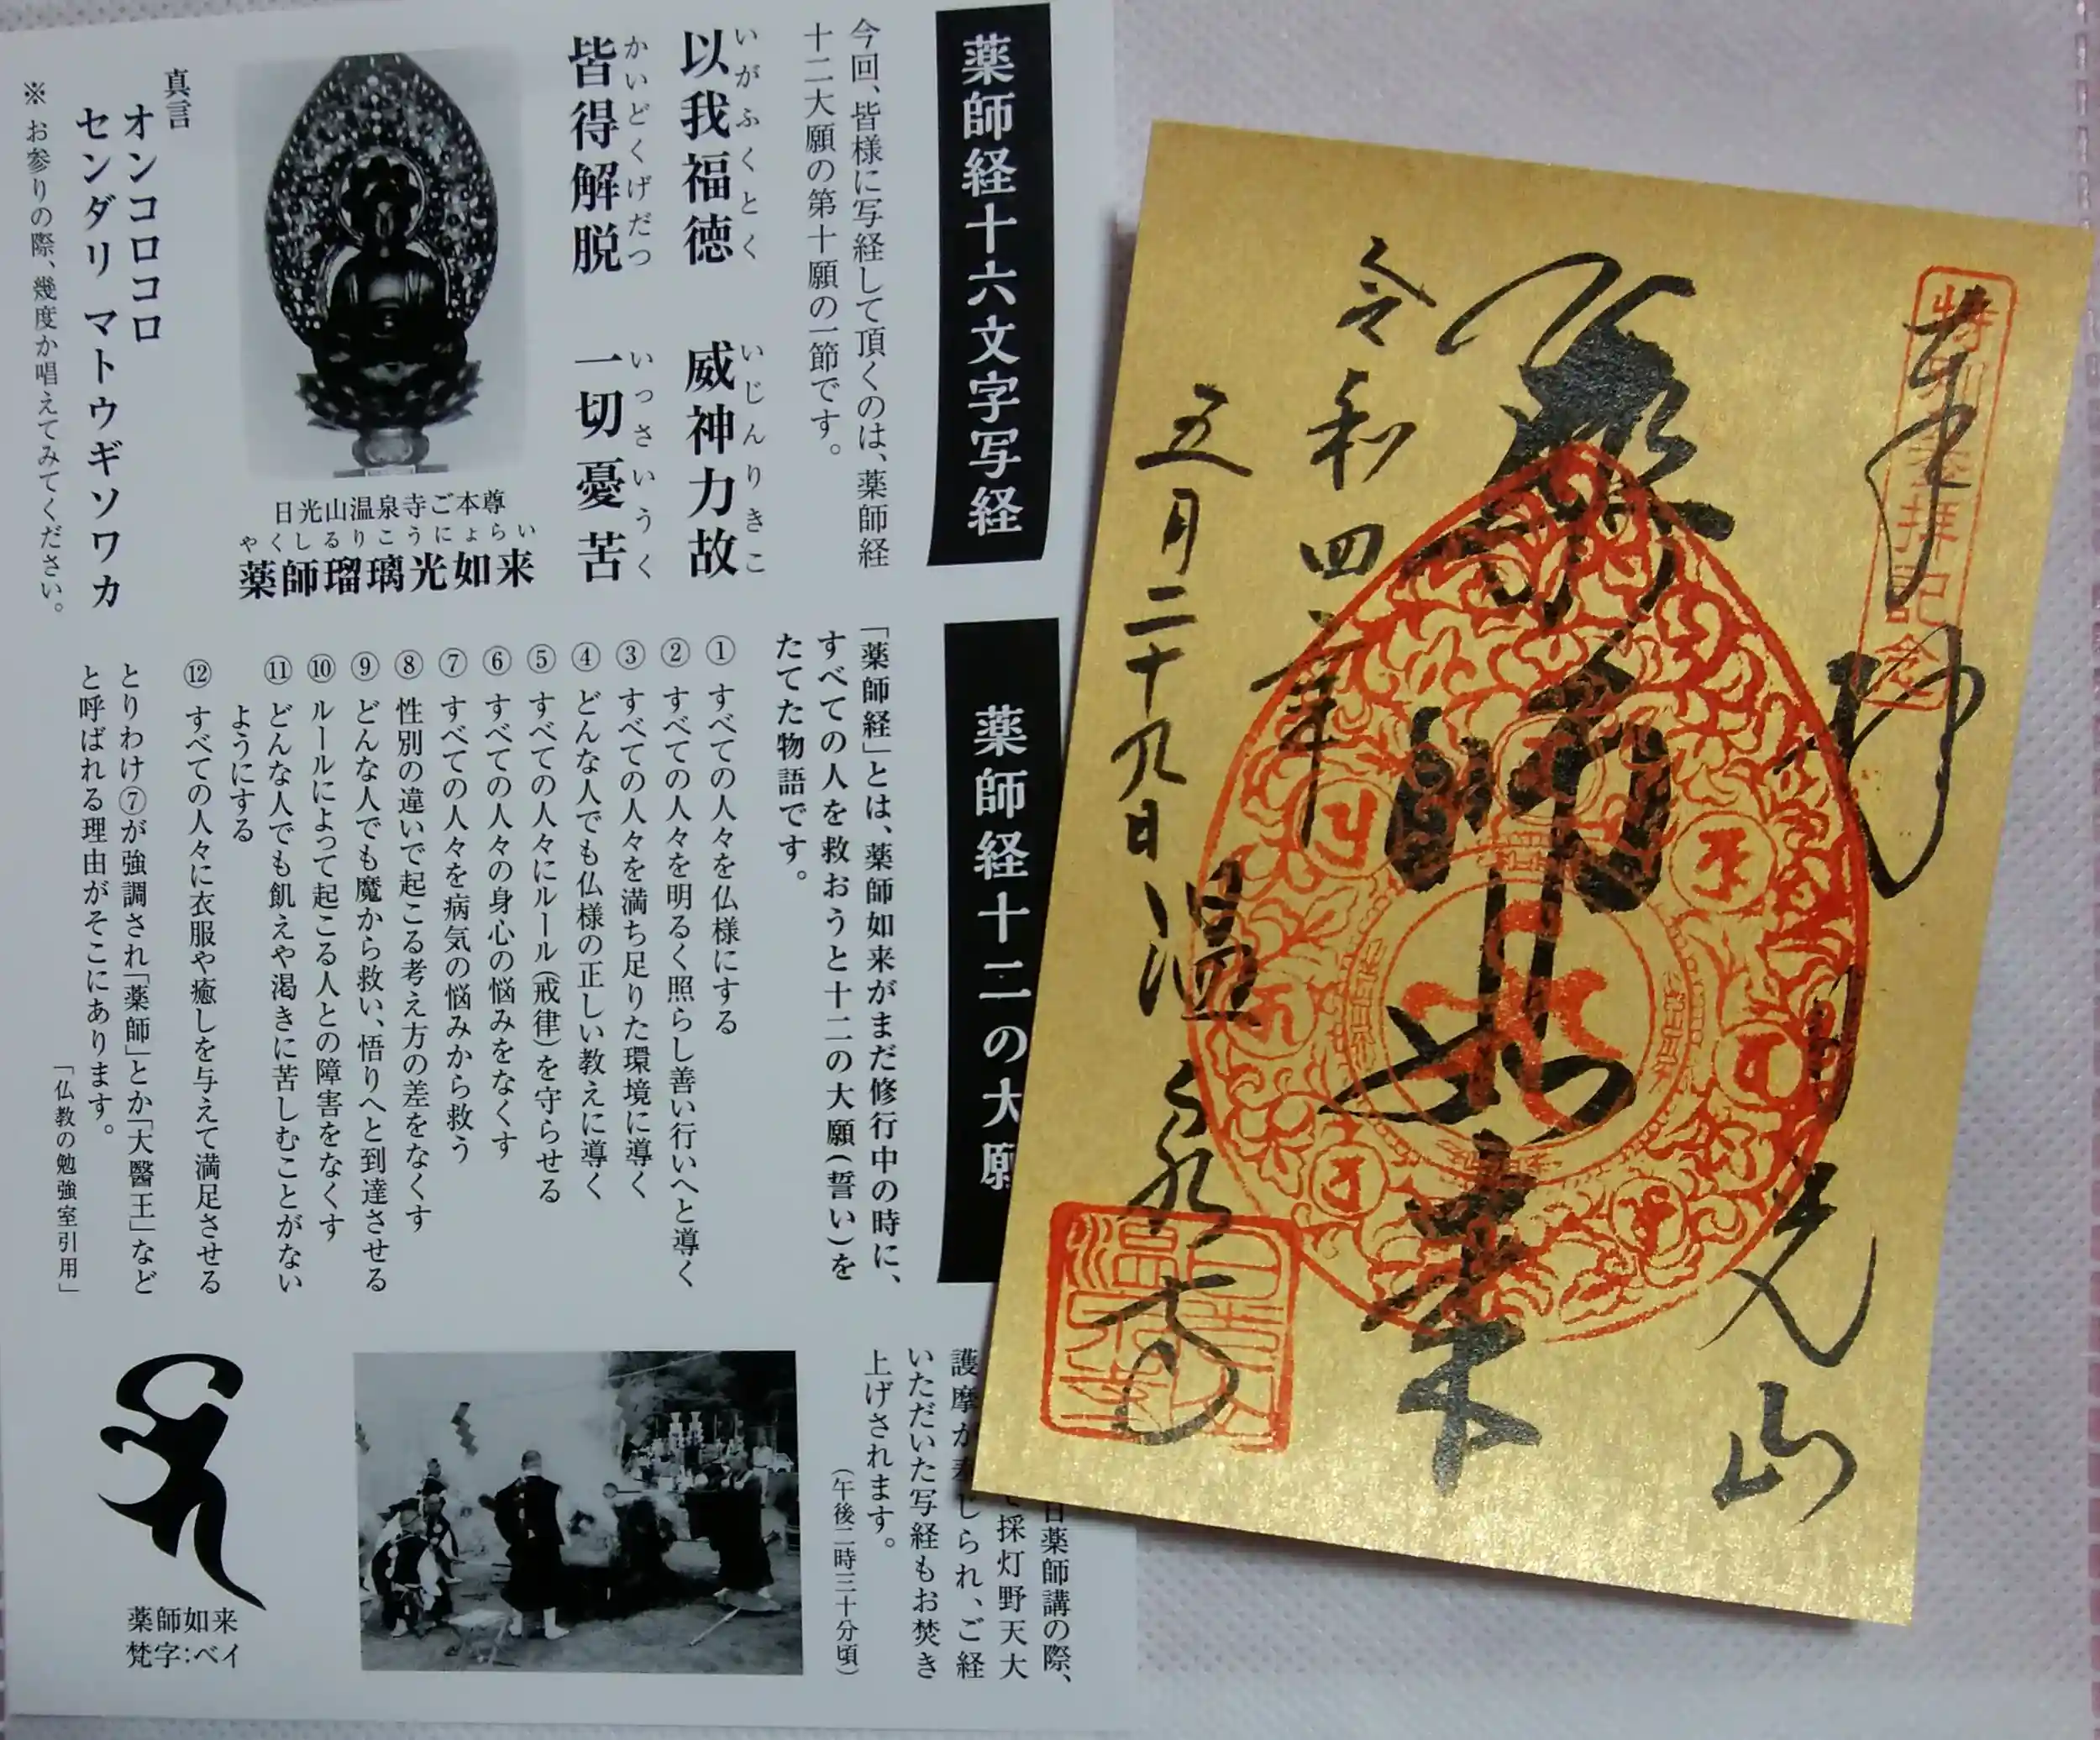 薬師経十六文字写経
今回、皆様に写経して頂くのは、薬師経
十二大願の第十願の一節です。
いがふくとく いじんりきこ
以我福徳 威神力故
かいどくげだつ いっさいうく
皆得解脱 一切憂苦
日光山温泉寺ご本尊
やくしるりこうにょらい
薬師瑠璃光如来
真言
オンコロコロ
センダリ マトウギソワカ
※お参りの際、幾度か唱えてみてください。
薬師経十二の大願
「薬師経」とは、薬師如来がまだ修行中の時に、
すべての人を救おうと十二の大願(誓い)を
たてた物語です。
① すべての人々を仏様にする
② すべての人々を明るく照らし善い行いへと導く
③ すべての人々を満ち足りた環境に導く
④ どんな人でも仏様の正しい教えに導く
⑤ すべての人々にルール(戒律)を守らせる
⑥ すべての人々の身心の悩みをなくす
⑦ すべての人々を病気の悩みから救う
⑧ 性別の違いで起こる考え方の差をなくす
⑨ どんな人でも魔から救い、悟りへと到達させる
⑩ ルールによって起こる人との障害をなくす
⑪ どんな人でも飢えや渇きに苦しむことがない
ようにする
⑫ すべての人々に衣服や癒しを与えて満足させる
とりわけ⑦が強調され「薬師」とか「大醫王」など
と呼ばれる理由がそこにあります。
「仏教の勉強室引用」
日薬師講の際、
て採灯野天大
護摩が じられ、ご経
いただいた写経もお焚き
上げされます。
(午後二時三十分頃)
薬師如来
梵字:ベイ
特別 拝記念
奉拝 日光山
薬師如来
令和四年
五月二十九日 温泉寺